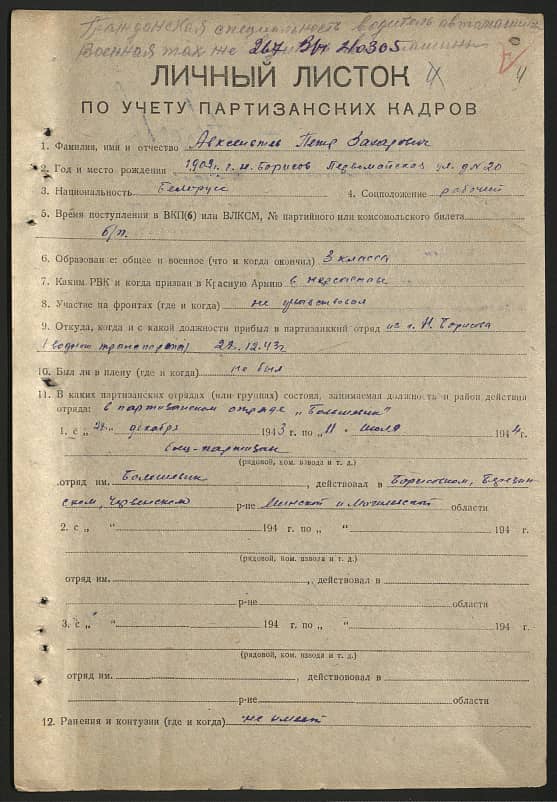 Гражданская специальность водитель автомашин
Военная так же
267 210305
ЛИЧНЫЙ ЛИСТОК
4
ПО УЧЕТУ ПАРТИЗАНСКИХ КАДРОВ
1. Фамилия, имя и отчество Авксентьев Петр Захарович
2. Год и место рождения 1909 г. г. Н. Борисов Первомайская ул. д № 20
3. Национальность Белорусс 4. Соцположение рабочий
5. Время поступления в ВКП(б) или ВЛКСМ, № партийного или комсомольского билета
б/п.
6. Образование: общее и военное (что и когда окончил) 3 класса
7. Каким РВК и когда призван в Красную Армию
8. Участие на фронтах (где и когда) не участвовал
9. Откуда, когда и с какой должности прибыл в партизанкий отряд из г. Н. Борисова
(водник транспорта) 27.12.43 г
10. Был ли в плену (где и когда) не был
11. В каких партизанских отрядах (или группах) состоял, занимаемая должность и район действия
отряда: в партизанском отряде „Большевик"
1. с „27" декабря 1943 г. по „11" июля 1944 г.
боец-партизан
(рядовой, ком. взвода и т. д.)
отряд им. Большевик, действовал в Борисовском, Березин
ском, Червенском р-не Минской и Могилевской области
2. с „ " 194 г. по „ " 194 г.
(рядовой, ком. взвода и т. д.)
отряд им. , действовал в
р-не области
3. с „ " 194 г. по „ " 194 г.
(рядовой, ком. взвода и т. д.)
отряд им. , действововал в
р-не области
12. Ранения и контузии (где и когда) не имеет